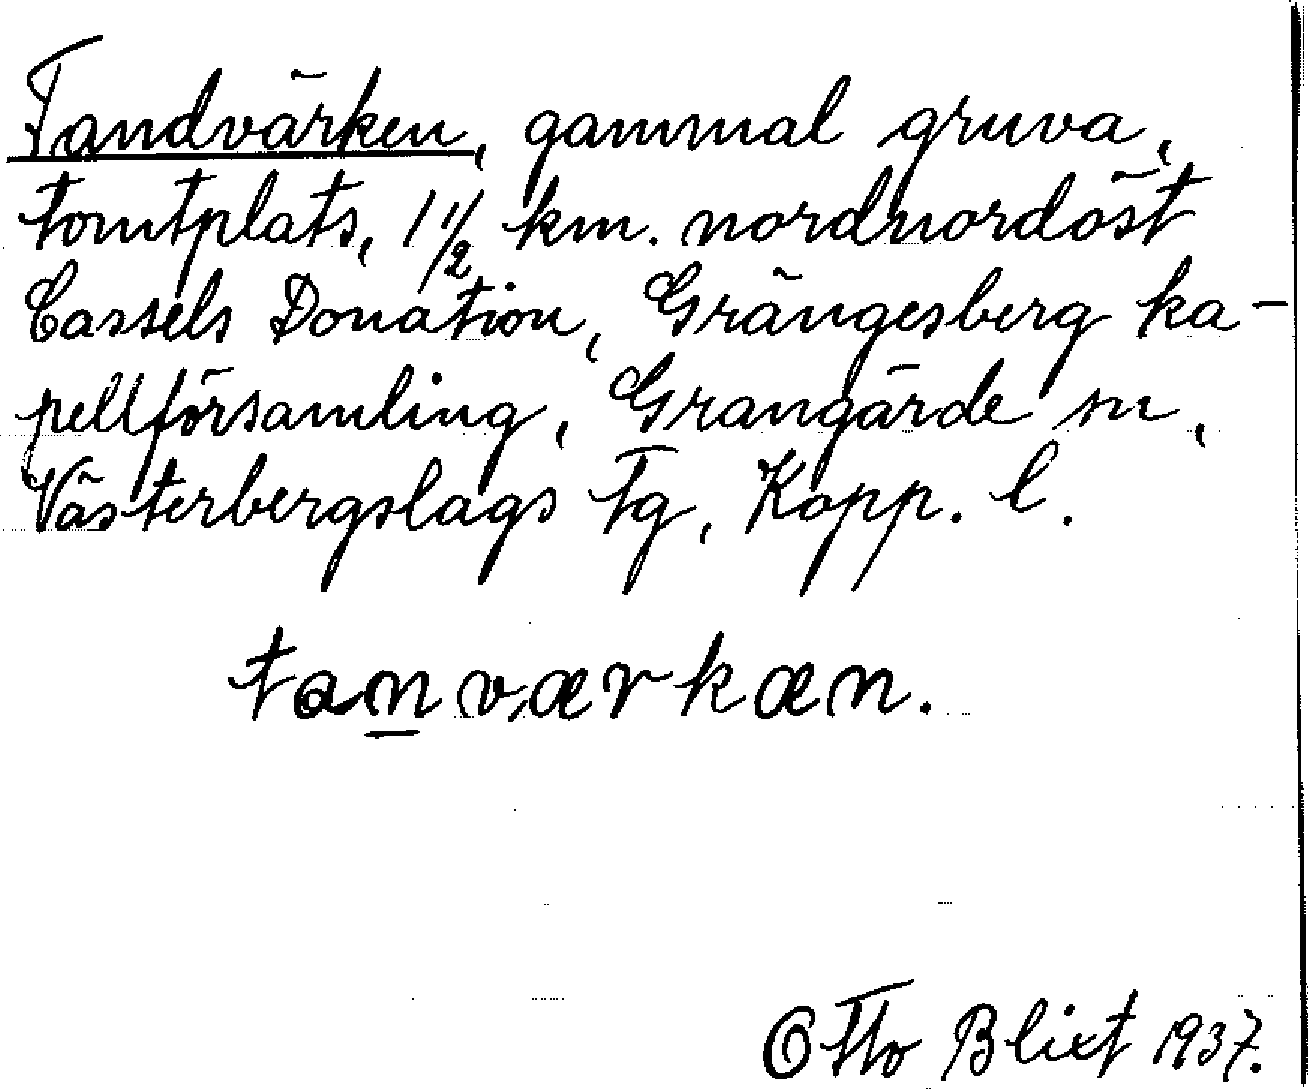 Tandvärken, gammal gruva,
tomtplats, 1 1/2 km. nordnordöst
Cassels Donation, Grängesberg ka-
pellförsamling, Grangärde sn,
Västerbergslags tg, Kopp. l.
tanværkæn.
Otto Blixt 1937.